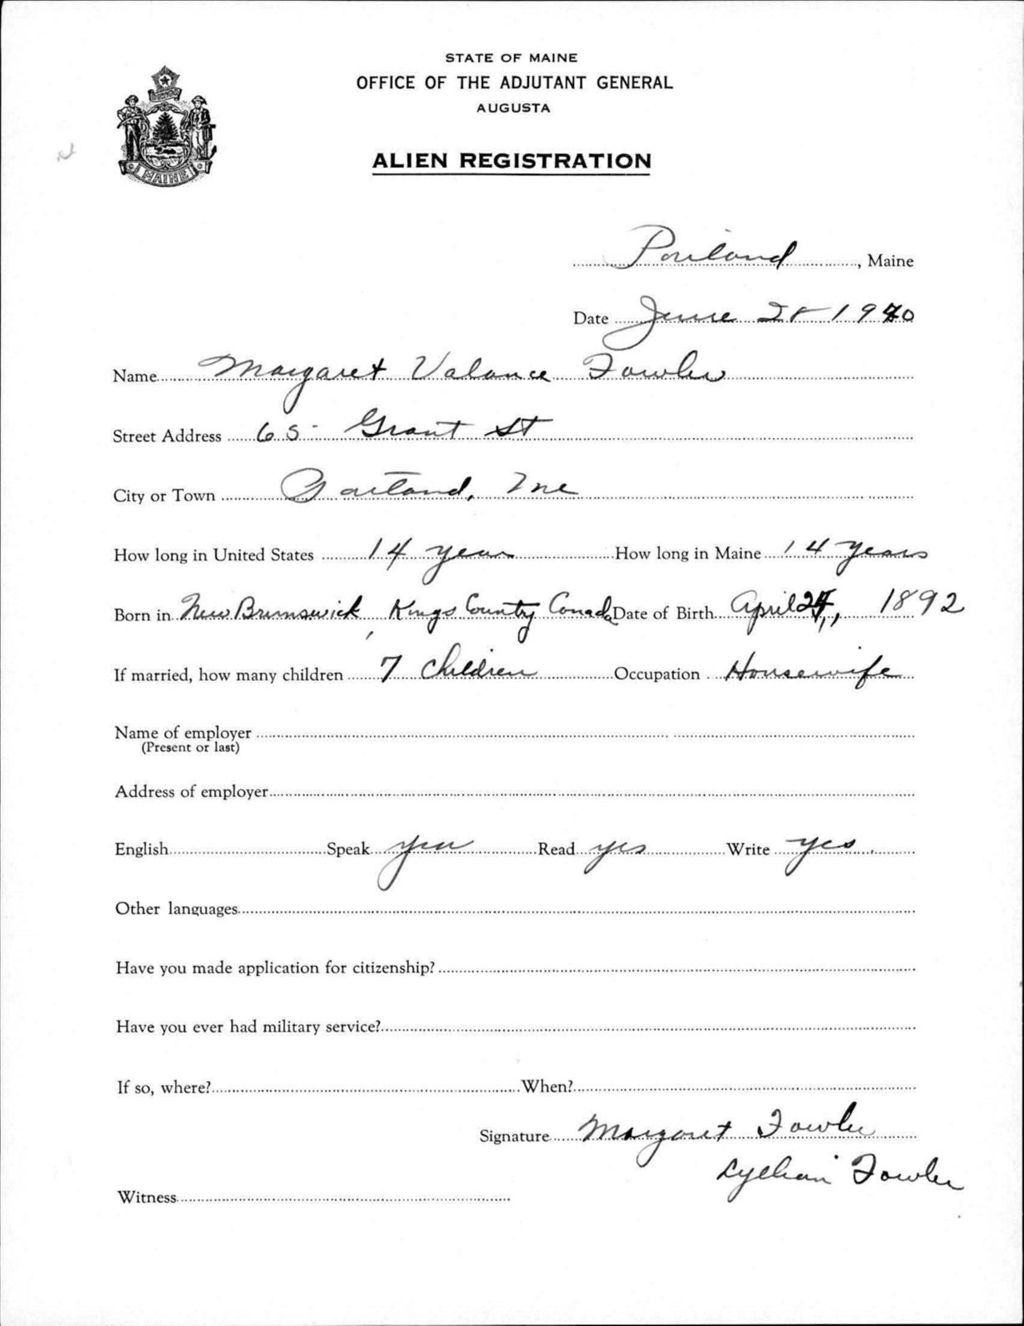 STATE OF MAINE
OFFICE OF THE ADJUTANT GENERAL
AUGUSTA
ALIEN REGISTRATION
MAINE
Portland, Maine
Date June 28 1940
Name Margaret Valance Fowler
Street Address 65 Grant St
City or Town Portland, Me
How long in United States 14 years How long in Maine 14 years
Born in New Brunswick, Kings County Canada Date of Birth April 24, 1892
If married, how many children 7 children Occupation Housewife
Name of employer
(Present or last)
Address of employer
English Speak yes Read yes Write yes
Other languages
Have you made application for citizenship?
Have you ever had military service?
If so, where? When?
Signature Margaret Fowler
Fowler
Witness